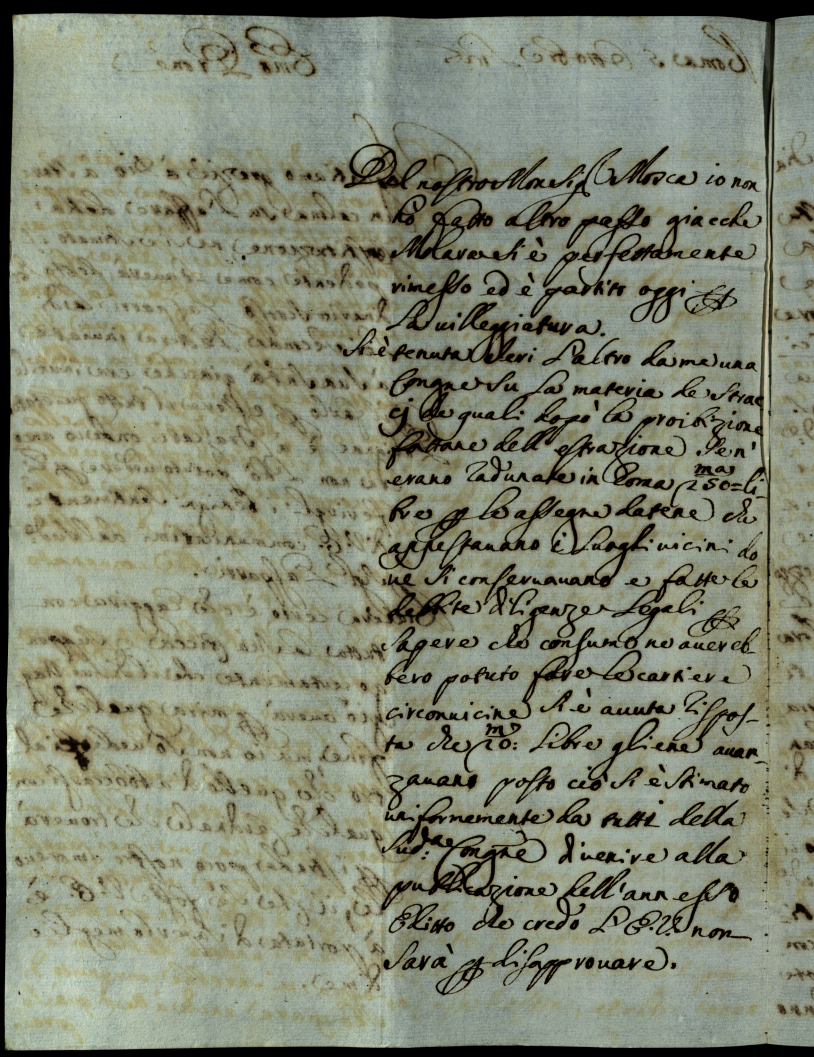 Del nostro Monsig.r Mosca io non
hò fatto altro passo giacche
Molara si è perfettamente
rimesso ed è partito oggi p
la villeggiatura.
Si è tenuta Ieri l'altro da me una
Congne su la materia de Strac
cj de quali dopò la proibizione
fattane dell'estrazione se n'
erano radunate in Roma 250ma= li-
bre p le assegne datene che
appestauano i luoghi uicini do
ue si conseruauano e fatte le
debbite diligenze legali p
sapere che consumo ne auereb
bero potuto fare le cartiere
circonuicine si è auuta rispos-
ta che 10m: libre gliene auan-
zauano posto ciò si è stimato
uniformemente da tutti della
sud.a Congne di uenire alla
publicazione dell'annesso
Editto che credo l'E.V. non
sarà p disapprouare.